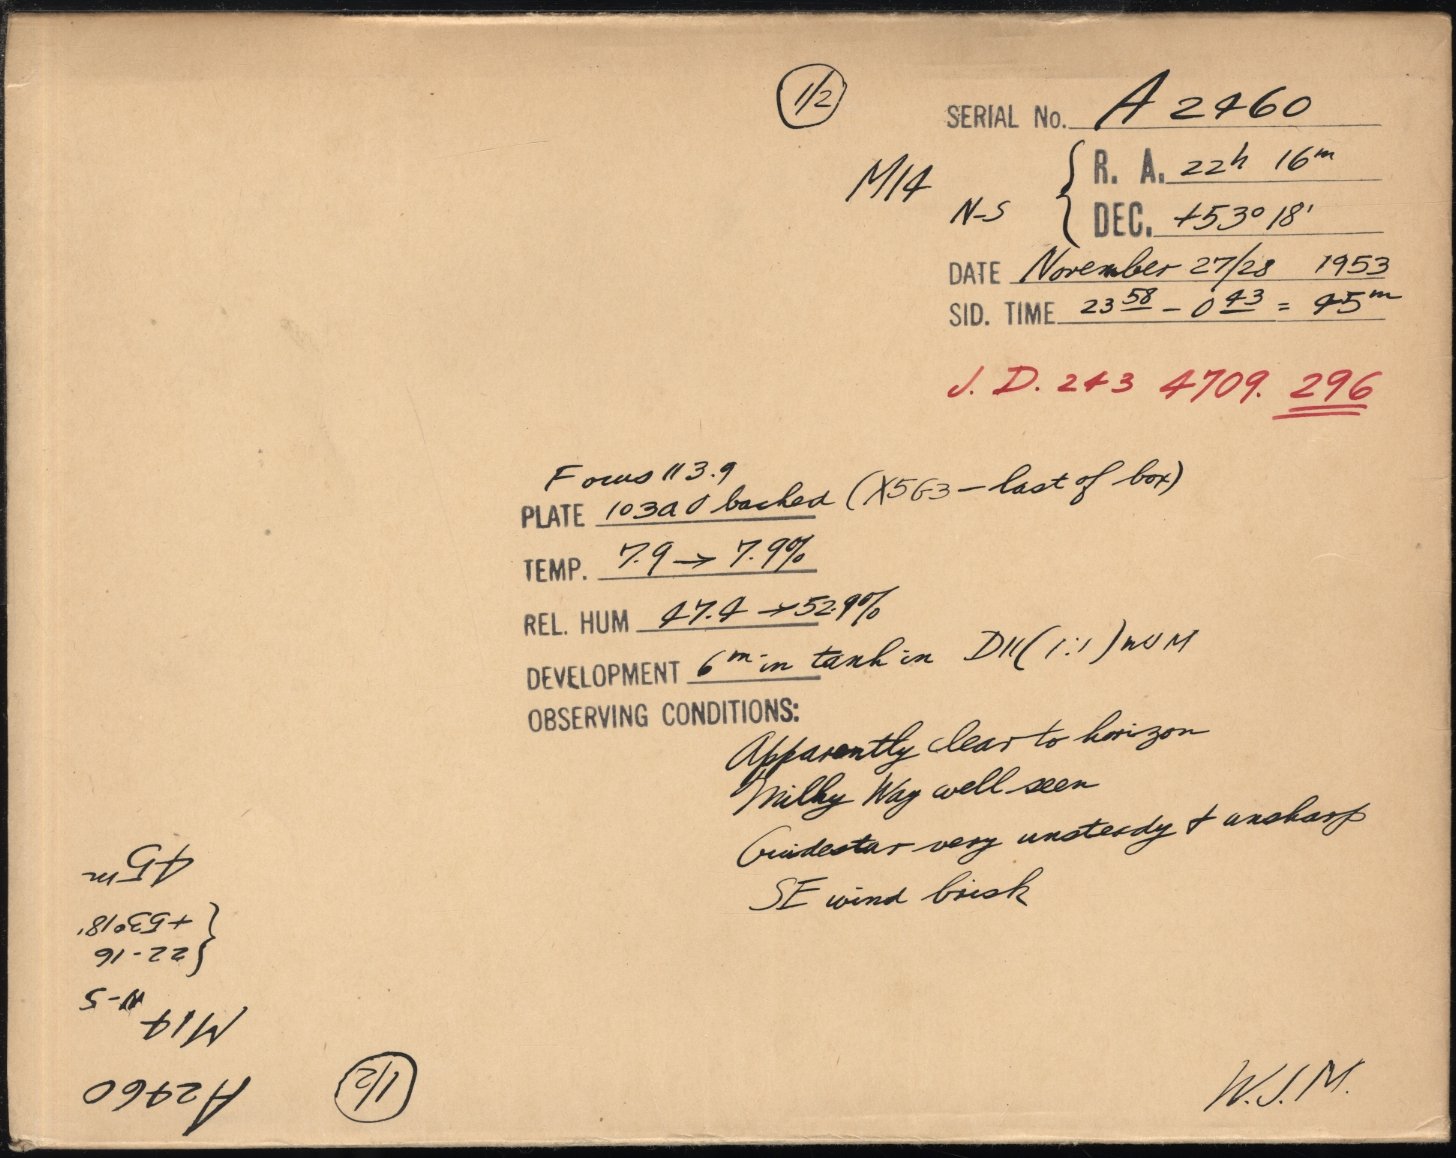 1/2
SERIAL No. A 2460
M14
N-S
R. A. 22h 16m
DEC. +53° 18'
DATE November 27/28 1953
SID. TIME 23 58 - 0 43 = 45m
J. D. 243 4709. 296
Focus 113.9
PLATE 103a O backed (X5G3 - last of box)
TEMP. 7.9 → 7.9%
REL. HUM 47.4 → 52.9%
DEVELOPMENT 6m in tank in D11 (1:1)
OBSERVING CONDITIONS:
Apparently clear to horizon
Milky Way well seen
Guidestar very unsteady & unsharp
SE wind brisk
W.J.M.
A2460
1/2
M14
N-S
22-16
+53°18'
45m